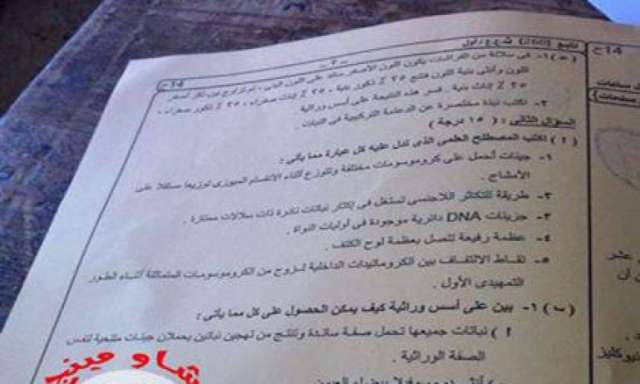 تابع [260] ث.ع.ج/أول
- ٢ -
14ح
(ب) ١- في سلالة من الفراشات يكون اللون الأصفر سائد على اللون البني، تم تزاوج بين ذكر أصفر
اللون وأنثى بنية اللون فنتج ٢٥ ٪ ذكور بنية ، ٢٥ ٪ إناث صفراء ، ٢٥ ٪ ذكور صفراء ،
٢٥ ٪ إناث بنية . فسر هذه النتيجة على أسس وراثية .
٢- اكتب نبذة مختصرة عن الدعامة التركيبية في النبات .
السؤال الثاني : ( ١٥ درجة )
( أ ) اكتب المصطلح العلمي الذي تدل عليه كل عبارة مما يأتي :
١- جينات تحمل على كروموسومات مختلفة وتتوزع أثناء الانقسام الميوزي توزيعا مستقلا على
الأمشاج .
٢- طريقة للتكاثر اللاجنسي تستغل في إكثار نباتات نادرة ذات سلالات ممتازة .
٣- جزيئات DNA دائرية موجودة في أوليات النواة .
٤- عظمة رفيعة تتصل بعظمة لوح الكتف .
٥- نقاط الالتفاف بين الكروماتيدات الداخلية لزوج من الكروموسومات المتماثلة أثناء الطور
التمهيدي الأول .
(ب) ١- بين على أسس وراثية كيف يمكن الحصول على كل مما يأتي :
أ ) نباتات جميعها تحمل صفة سائدة وتنتج من تهجين نباتين يحملان جينات متنحية لنفس
الصفة الوراثية .
شاومينج
14ح